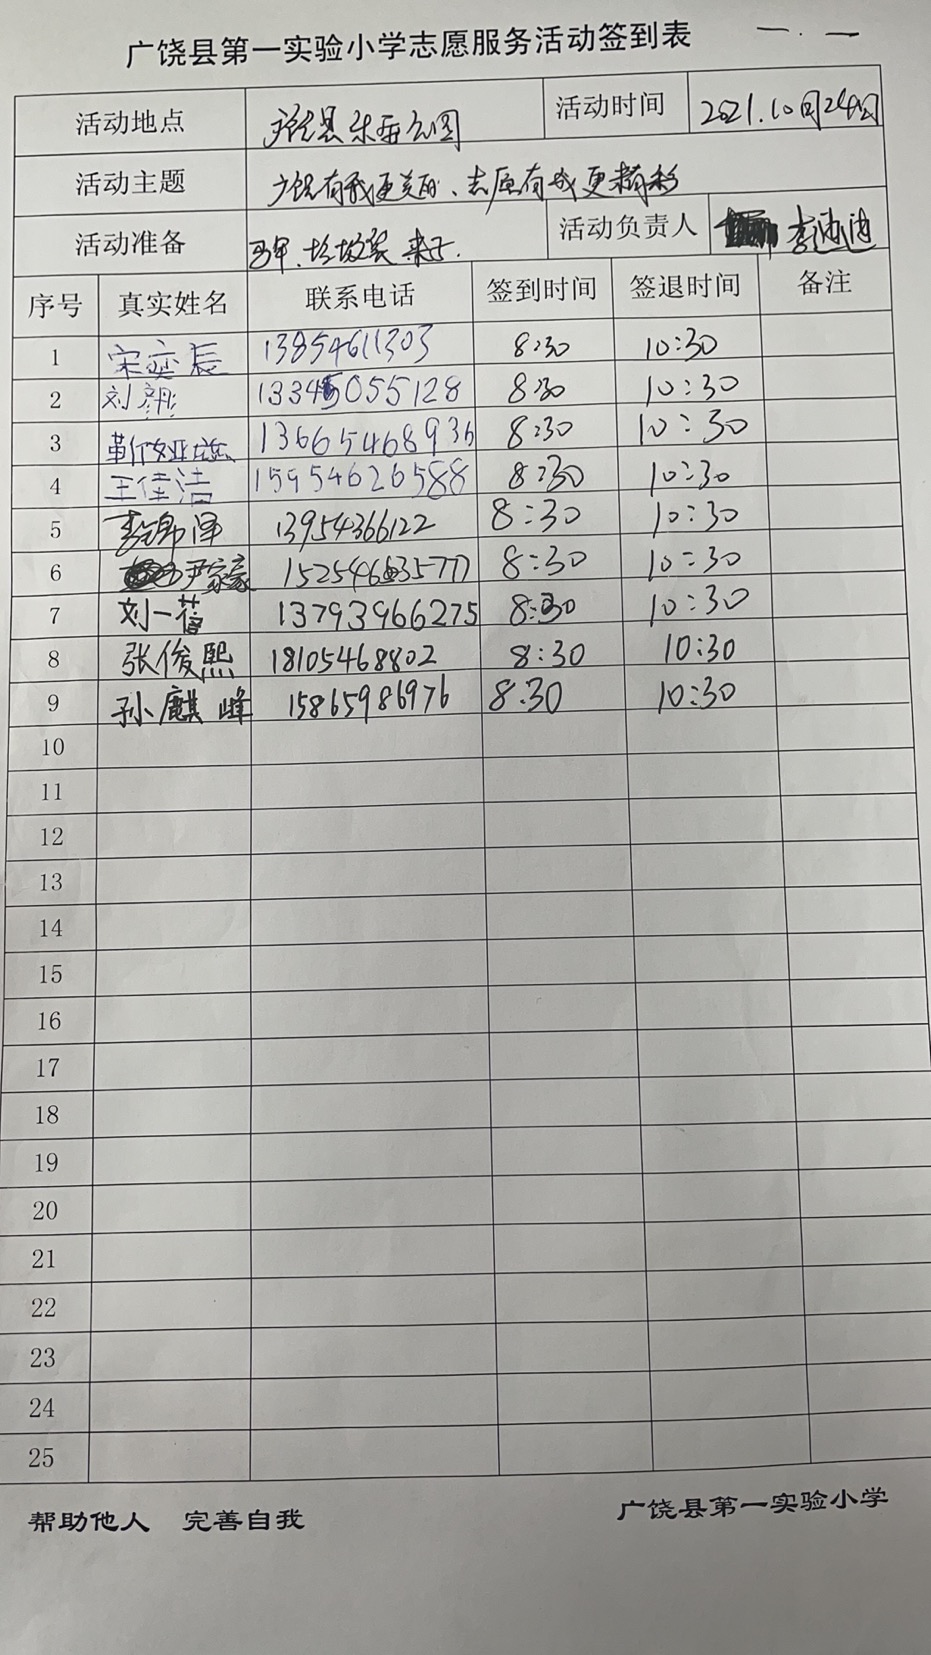 广饶县第一实验小学志愿服务活动签到表 一.一
活动地点 广饶县乐安公园 活动时间 2021.10月24日
活动主题 广饶有我更美丽、志愿有我更精彩
活动准备 垃圾袋 夹子. 活动负责人 李迪迪
序号 真实姓名 联系电话 签到时间 签退时间 备注
1 宋奕辰 13854611303 8:30 10:30
2 刘彦彤 13345055128 8:30 10:30
3 13665468936 8:30 10:30
4 王佳洁 15954626588 8:30 10:30
5 李锦泽 13954366122 8:30 10:30
6 尹家豪 8:30 10:30
7 刘一蓓 13793966275 8:30 10:30
8 张俊熙 18105468802 8:30 10:30
9 孙麒峰 15865986976 8:30 10:30
10
11
12
13
14
15
16
17
18
19
20
21
22
23
24
25
帮助他人 完善自我 广饶县第一实验小学